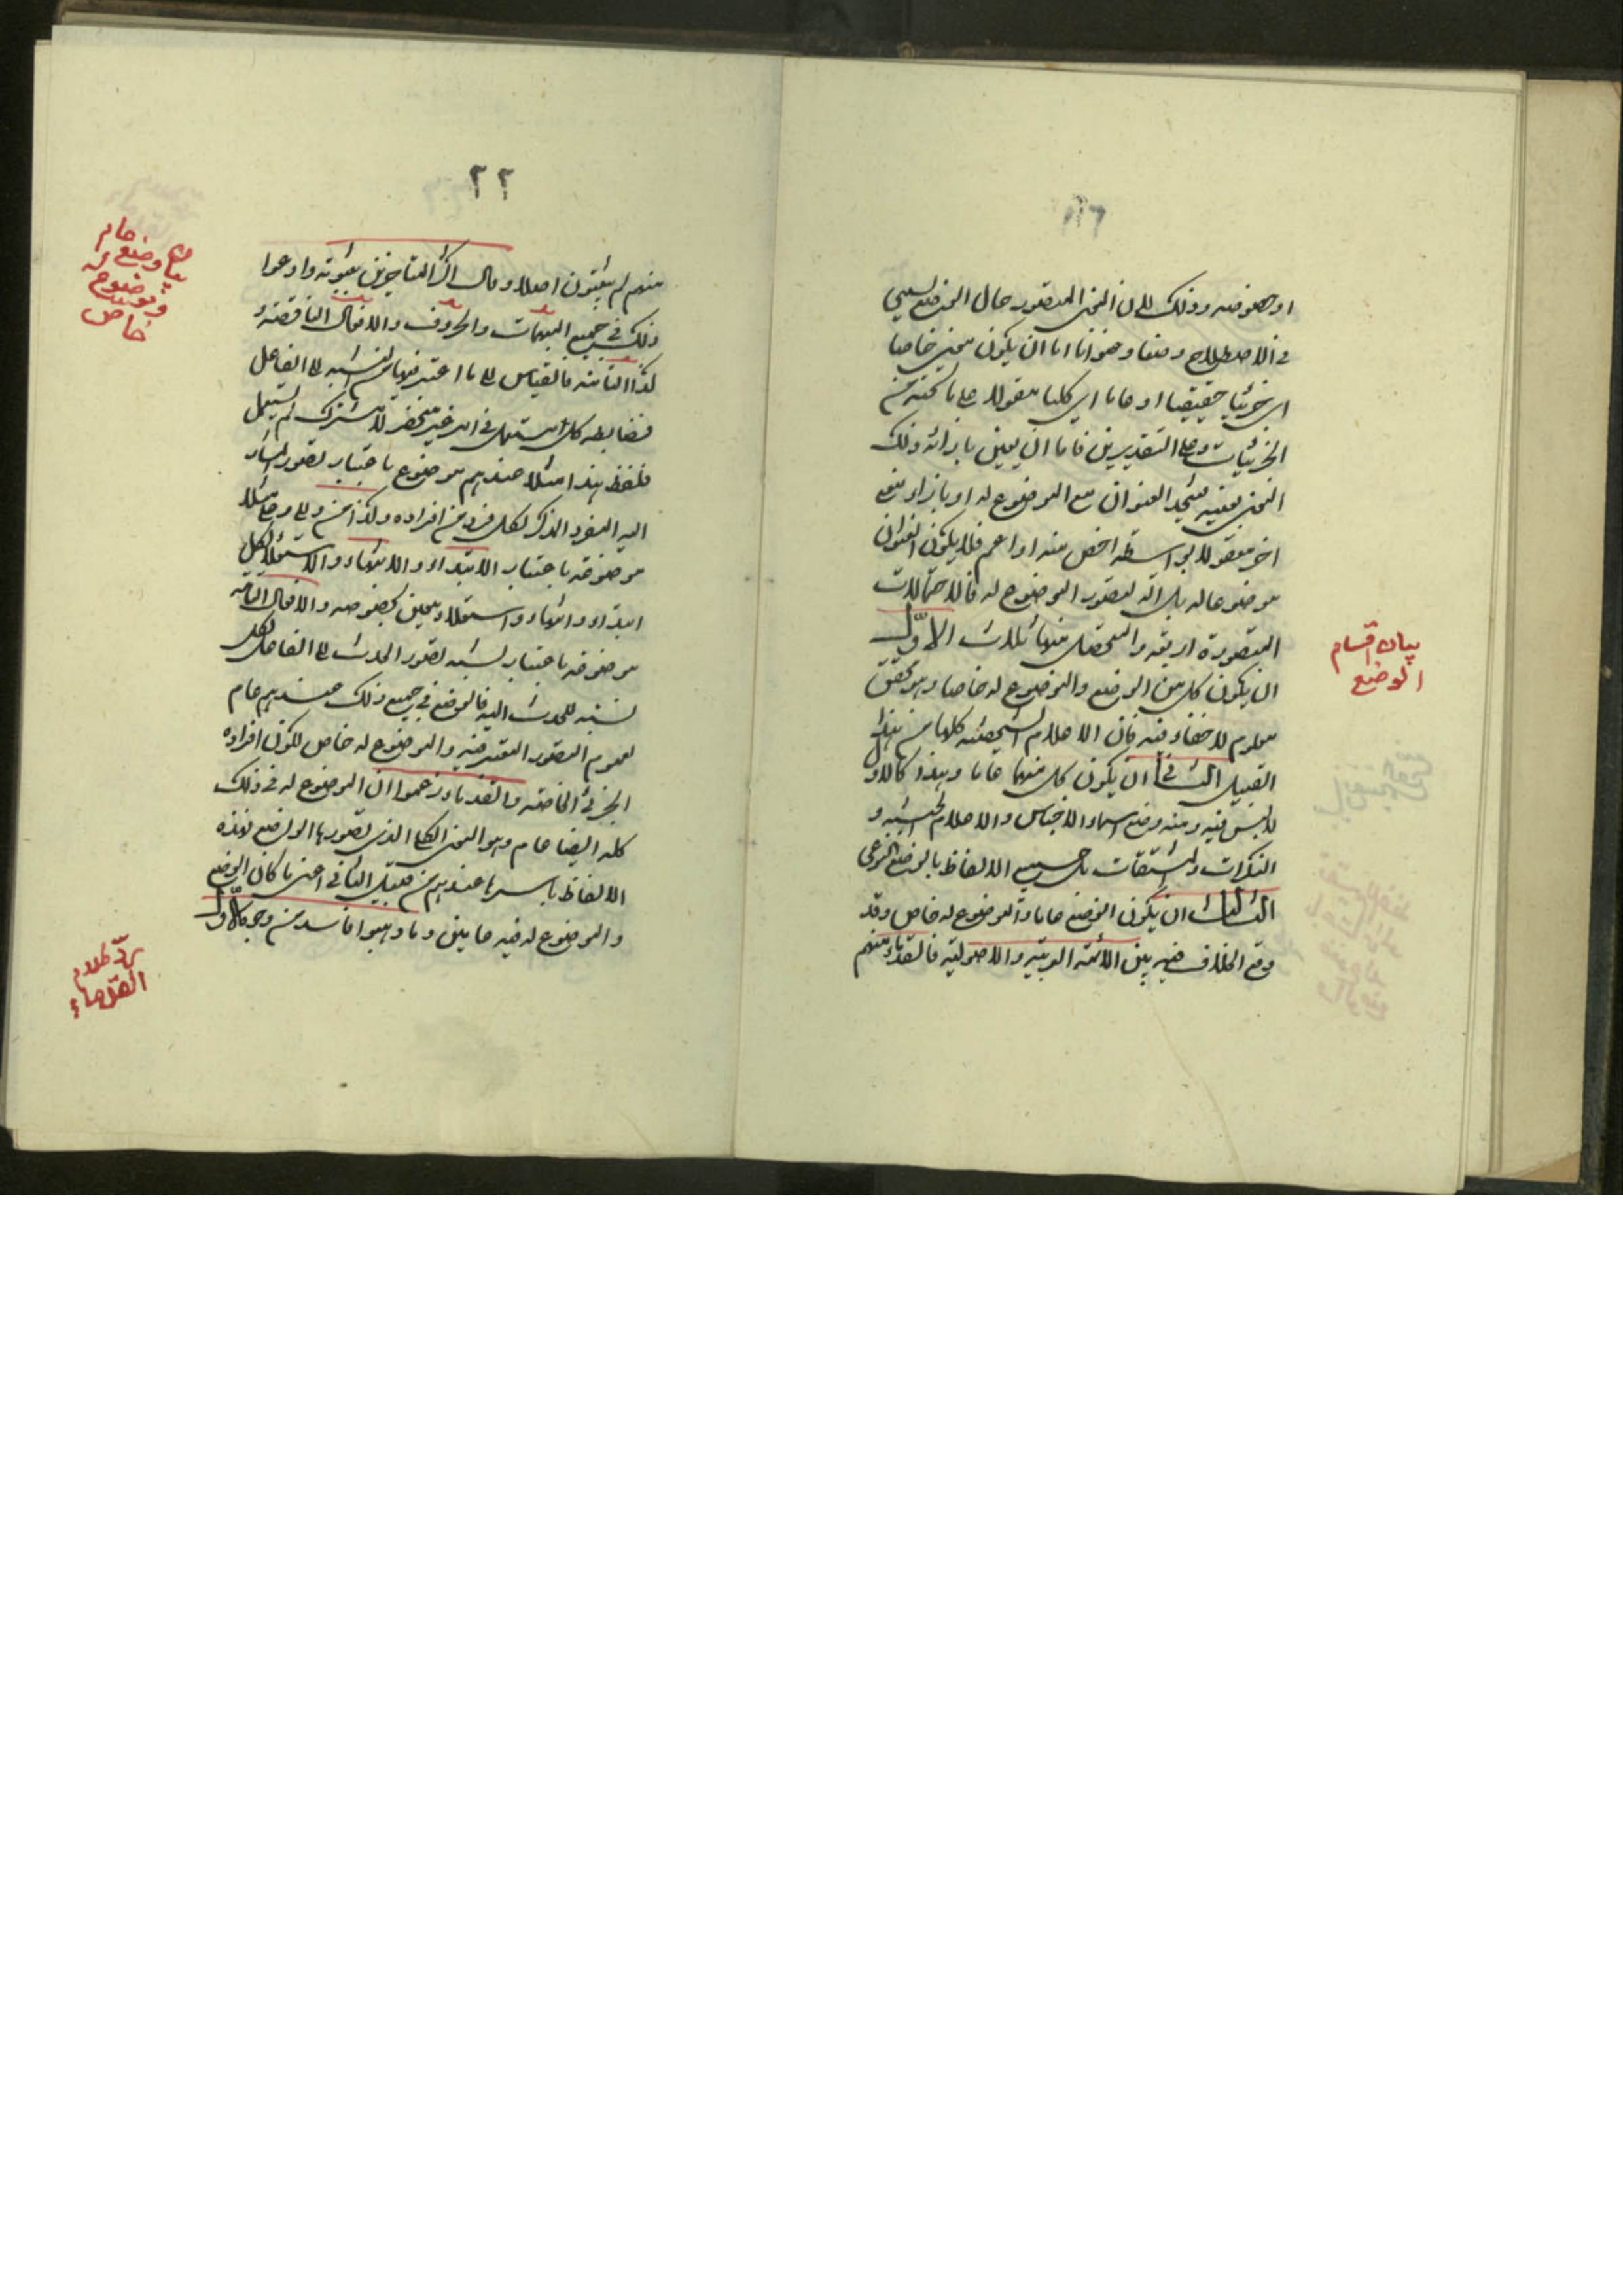 او خصوصه وذلك لان المعنى المتصور حال الوضع يسمى
في الاصطلاح وضعا وعنوانا اما ان يكون معنى خاصا
اي جزئيا حقيقيا او عاما اي كليا مقولا على ما تحته من
الجزئيات وعلى التقديرين فاما ان يعين بازائه ذلك
المعنى بعينه فيتحد العنوان مع الموضوع له او بازاء معنى
اخر معقول بواسطة اخص منه او اعم فلا يكون العنوان
موضوعا له بل الة لتصور الموضوع له فالاحتمالات
المتصورة اربعة والمتحصل منها ثلاث الاوّل
ان يكون كل من الوضع والموضوع له خاصا وهو محقق
معلوم لا خفاء فيه فان الاعلام الشخصية كلها من هذا
القبيل الثاني ان يكون كل منهما عاما وهذا كالاول
لا لبس فيه ومنه وضع اسماء الاجناس والاعلام الجنسية و
النكرات والمشتقات بل جميع الالفاظ بالوضع النوعي
الثالث ان يكون الوضع عاما والموضوع له خاص وقد
وقع الخلاف فيه بين الائمة العربية والاصولية فالقدماء منهم
بيان اقسام
الوضع
٢٢
منهم لم يثبتون اصلا وقال اكثر المتاخرين بثبوته وادعوا
ذلك في جميع المبهمات والحروف والافعال الناقصة و
كذا التامة بالقياس الى ما اعتبر فيها من النسبة الى الفاعل
فضابطه كل ما يستعمل في امر غير منحصر لا مشترك لم يستعمل
فلفظ هذا مثلا عندهم موضوع باعتبار تصور المشار
اليه المفرد المذكر لكل فرد من افراده وكذا من والى وعلى مثلا
موضوعة باعتبار الابتداء والانتهاء والاستعلاء لكل
ابتداء وانتهاء واستعلاء معين بخصوصه والافعال التامة
موضوعة باعتبار نسبة تصور الحدث الى الفاعل لكل
نسبة للحدث اليه فالوضع في جميع ذلك عندهم عام
لعموم التصور المعتبر فيه والموضوع له خاص لكون افراده
الجزئي الخاصة والقدماء زعموا ان الموضوع له في ذلك
كله ايضا عام وهو المعنى الكلي الذي تصورها الواضع فهذه
الالفاظ باسرها عندهم من قبيل الثاني اعنى ما كان الوضع
والموضوع له فيه عامين وما ذهبوا فاسد من وجوه الاوّل
بيان وضع عام
وموضوع له
خاص
ردّ كلام
القدماء